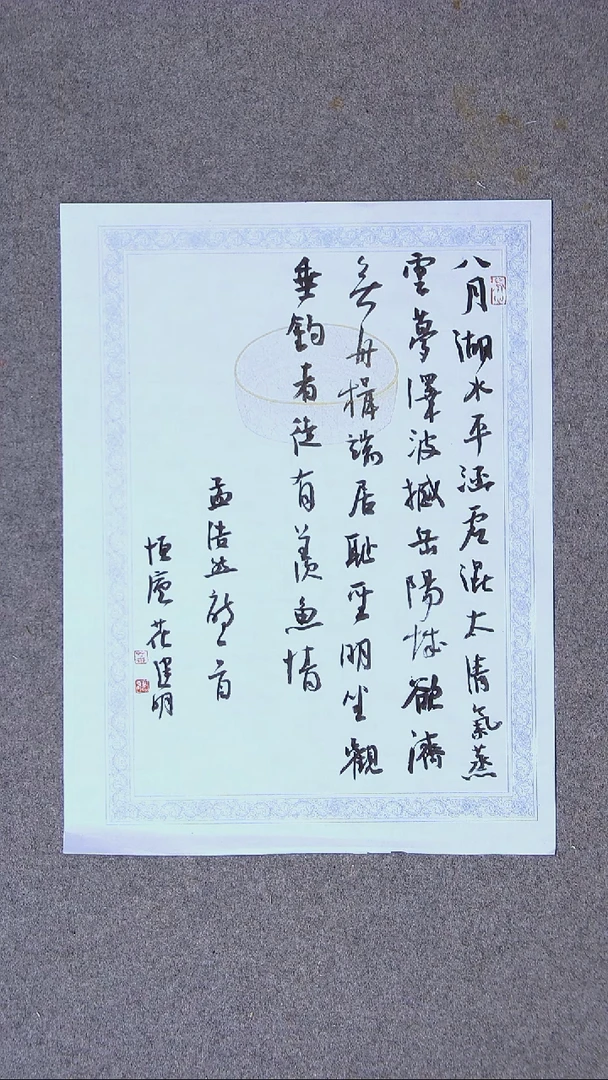 八月湖水平涵虛混太清氣蒸
雲夢澤波撼岳陽城欲濟
無舟楫端居耻聖明坐觀
垂釣者徒有羨魚情
孟浩然詩一首
恒 明